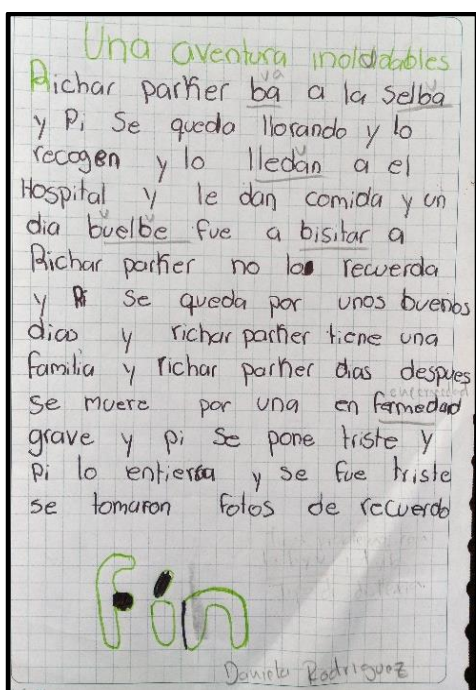 Una aventura inolddables
Richar parker ba a la selba
va
y Pi se queda llorando y lo
recogen y lo lledan a el
Hospital y le dan comida y un
dia buelbe fue a bisitar a
Richar parker no lo recuerda
y Pi se queda por unos bueños
dias y richar parker tiene una
familia y richar parker dias despues
se muere por una en fermedad
enfermedad
grave y pi se pone triste y
Pi lo entierra y se fue triste
se tomaron fotos de recuerdo
Fin
Daniela Rodriguez